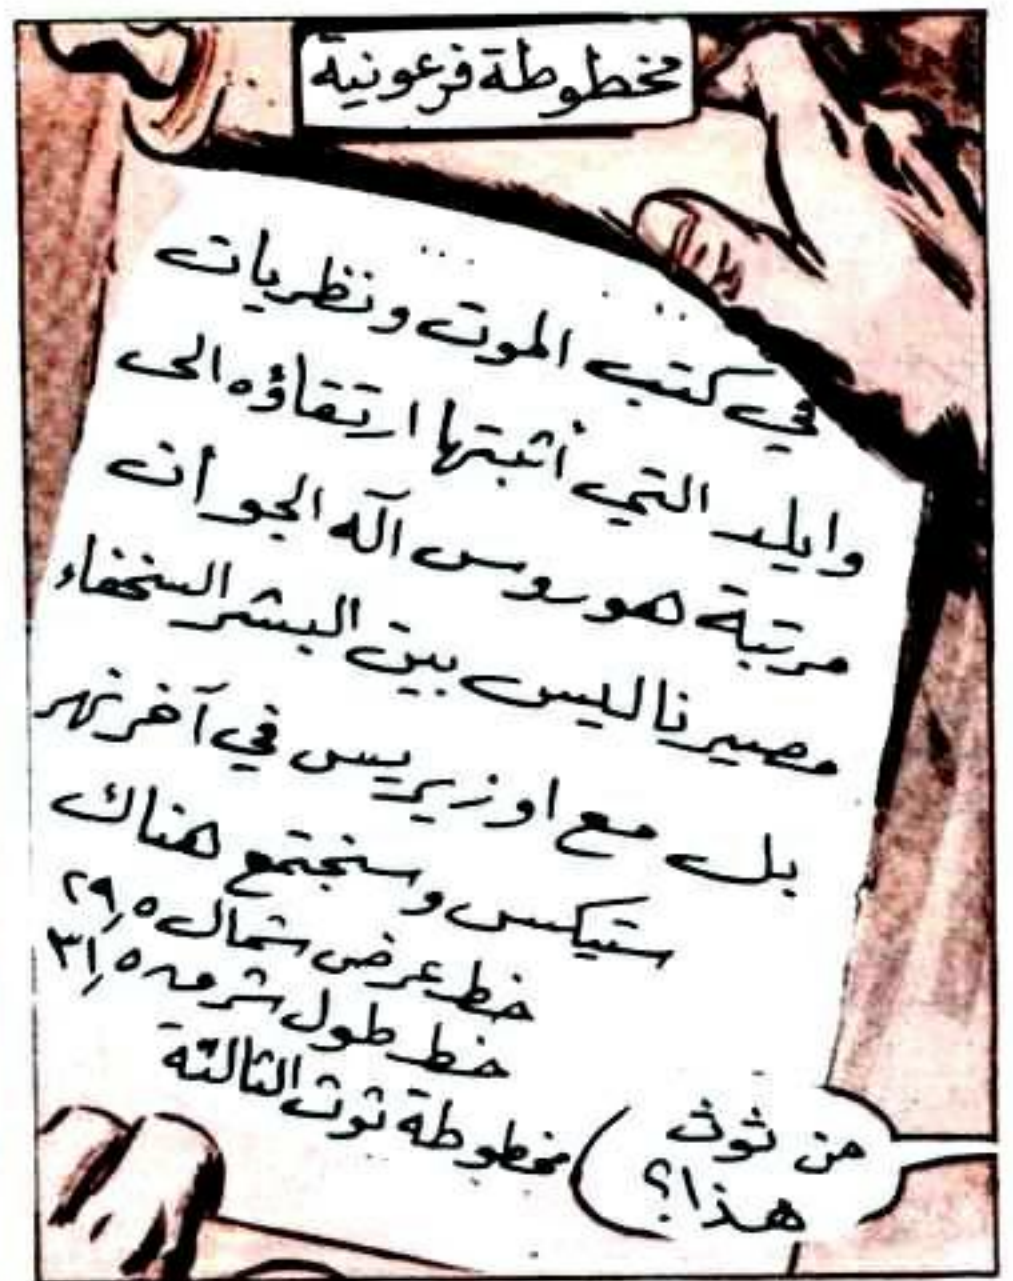 مخطوطة فرعونية
في كتب الموت ونظريات
وايلد التي أثبتها ارتقاؤه الى
مرتبة هوروس آله الجو أن
مصيرنا ليس بين البشر السخفاء
بل مع اوزيريس في آخر نهر
ستيكس وسنجتمع هناك
خط عرض شمال ٢٩,٥
خط طول شرق ٣١,٥
مخطوطة ثوث الثالثة
من ثوث
هذا؟